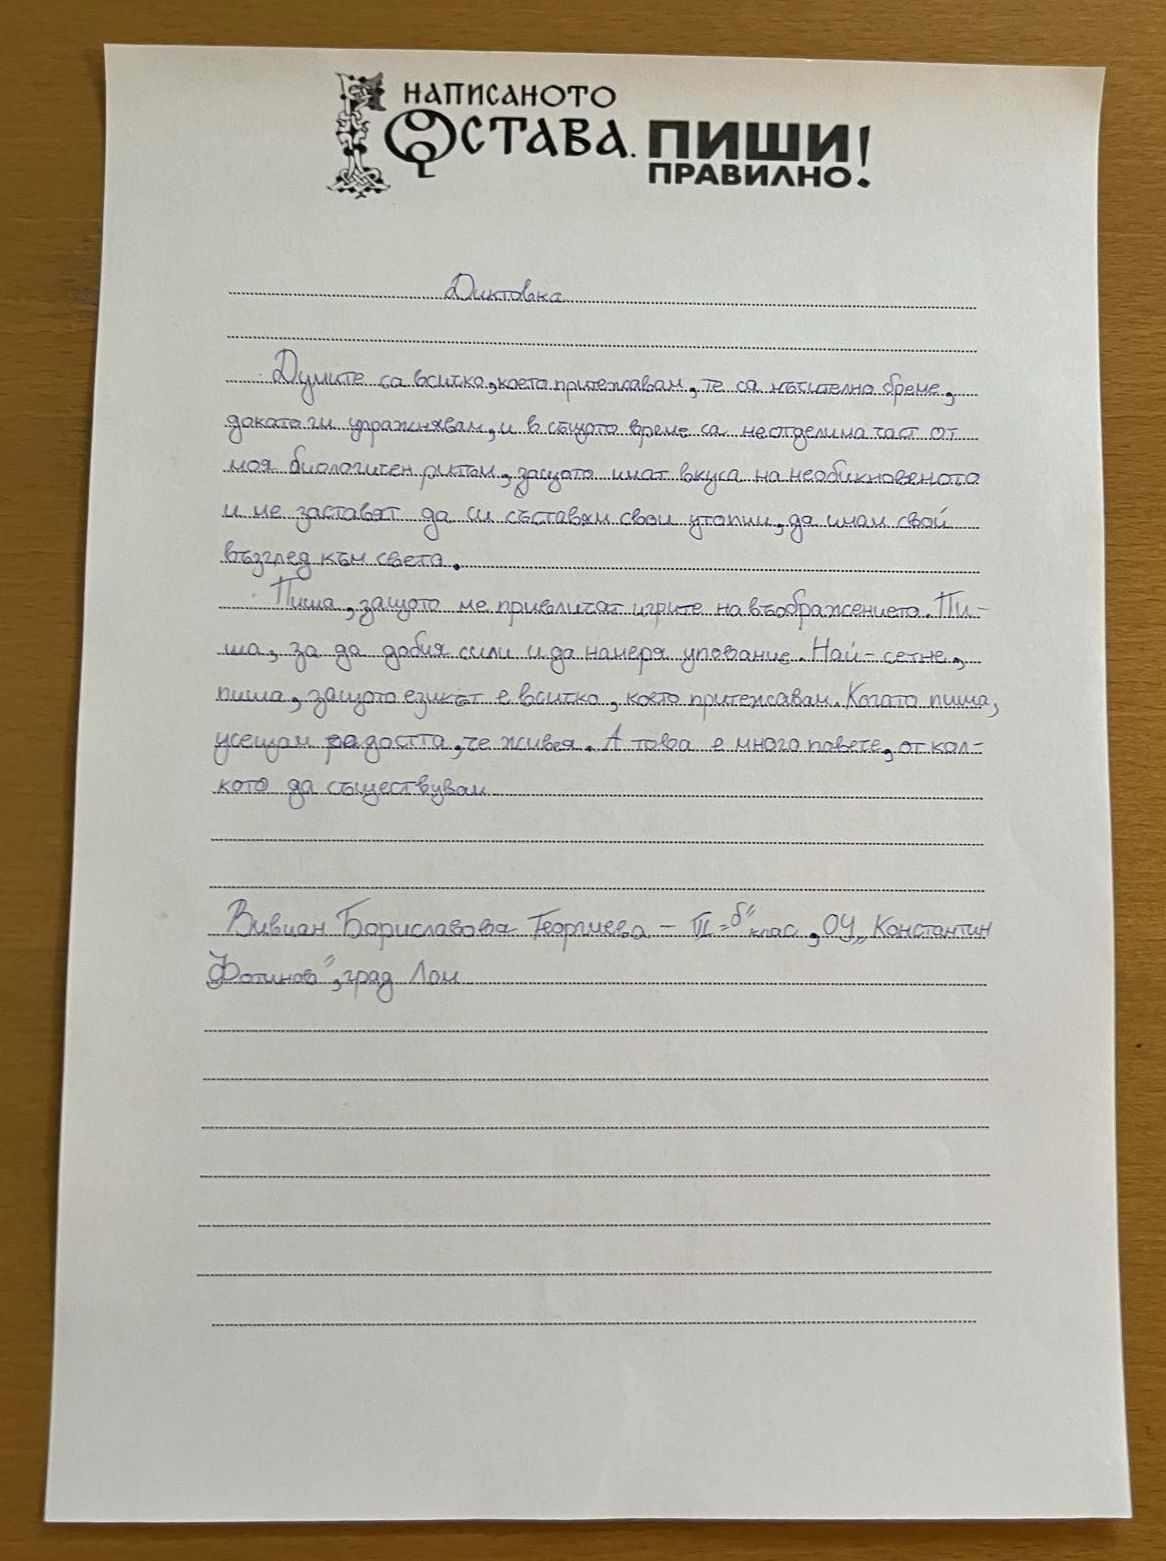 НАПИСАНОТО
ОСТАВА. ПИШИ
ПРАВИЛНО!
Диктовка
Думите са всичко, което притежавам, те са мъчително бреме,
докато ги упражнявам, и в същото време са неотделима част от
моя биологичен ритъм, защото имат вкуса на необикновеното
и ме заставят да си съставям свои утопии, да имам свой
възглед към света.
Пиша, защото ме привличат игрите на въображението. Пи-
ша, за да добия сили и да намеря упование. Най-сетне,
пиша, защото езикът е всичко, което притежавам. Когато пиша,
усещам радостта, че живея. А това е много повече, откол-
кото да съществувам
Вивиан Бориславова Георгиева - "б" клас, ОУ „Константин
Фотинов", град Лом